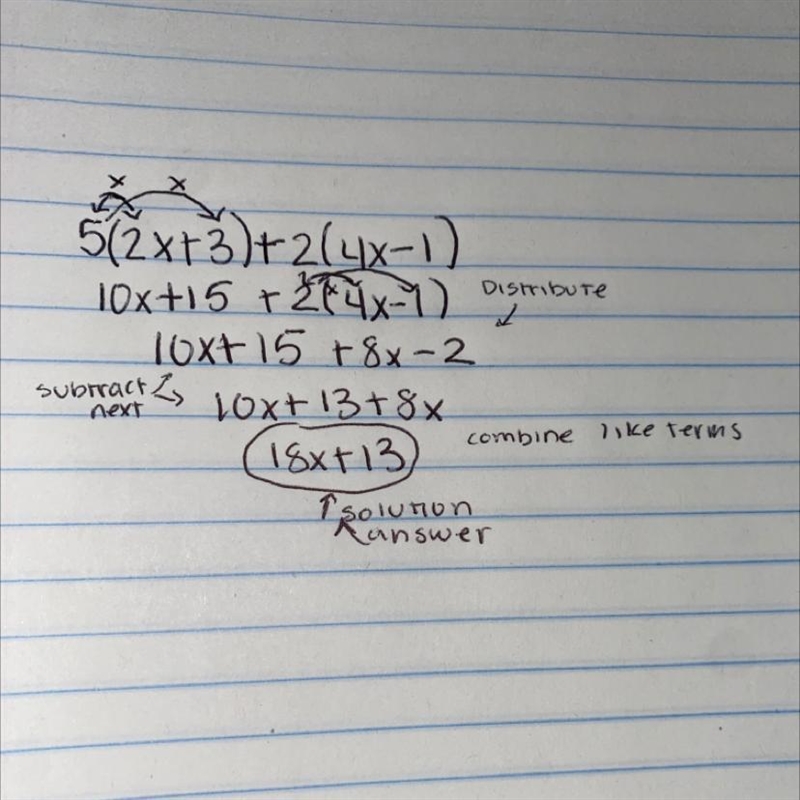 x x
5(2x+3)+2(4x-1)
10x+15 +2(4x-1) Distribute
10x+15 +8x-2
subtract
next 10x+13+8x
18x+13 combine like terms
solution
answer